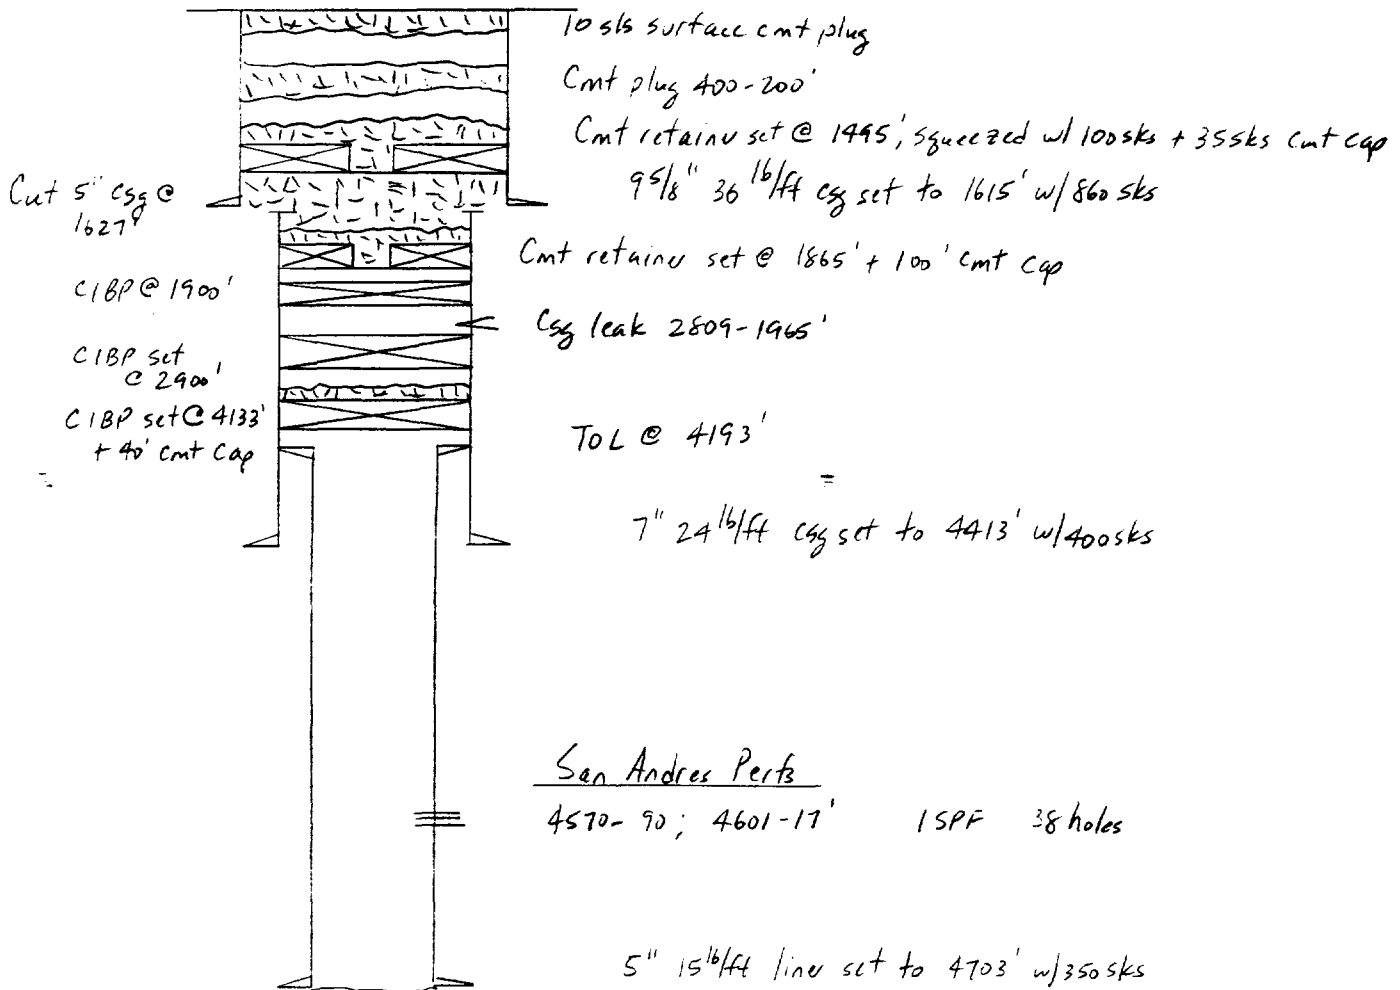 10 sks surface cmt plug
Cmt plug 400-200'
Cmt retainer set @ 1495', squeezed w/ 100sks + 35sks cmt cap
9 5/8" 36 lb/ft csg set to 1615' w/ 860 sks
Cut 5" csg @
1627'
Cmt retainer set @ 1865' + 100' cmt cap
CIBP @ 1900'
Csg leak 2809-1965'
CIBP set
@ 2900'
CIBP set @ 4133'
+ 40' cmt cap
TOL @ 4193'
7" 24 lb/ft csg set to 4413' w/ 400sks
San Andres Perfs
4570-90; 4601-17' 1SPF 38 holes
5" 15 lb/ft liner set to 4703' w/ 350sks